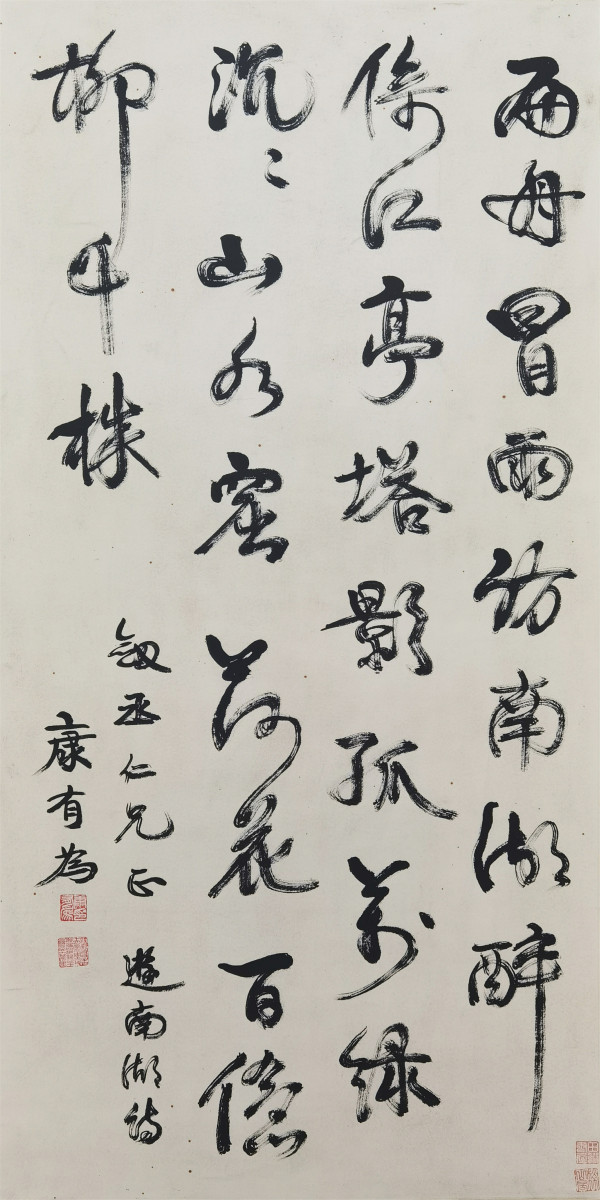 兩舟冒雨訪南湖醉
倚江亭塔影孤萬綠
沉〻山水窟荷花百億
柳千株
劔丞仁兄正 遊南湖詩
康有為